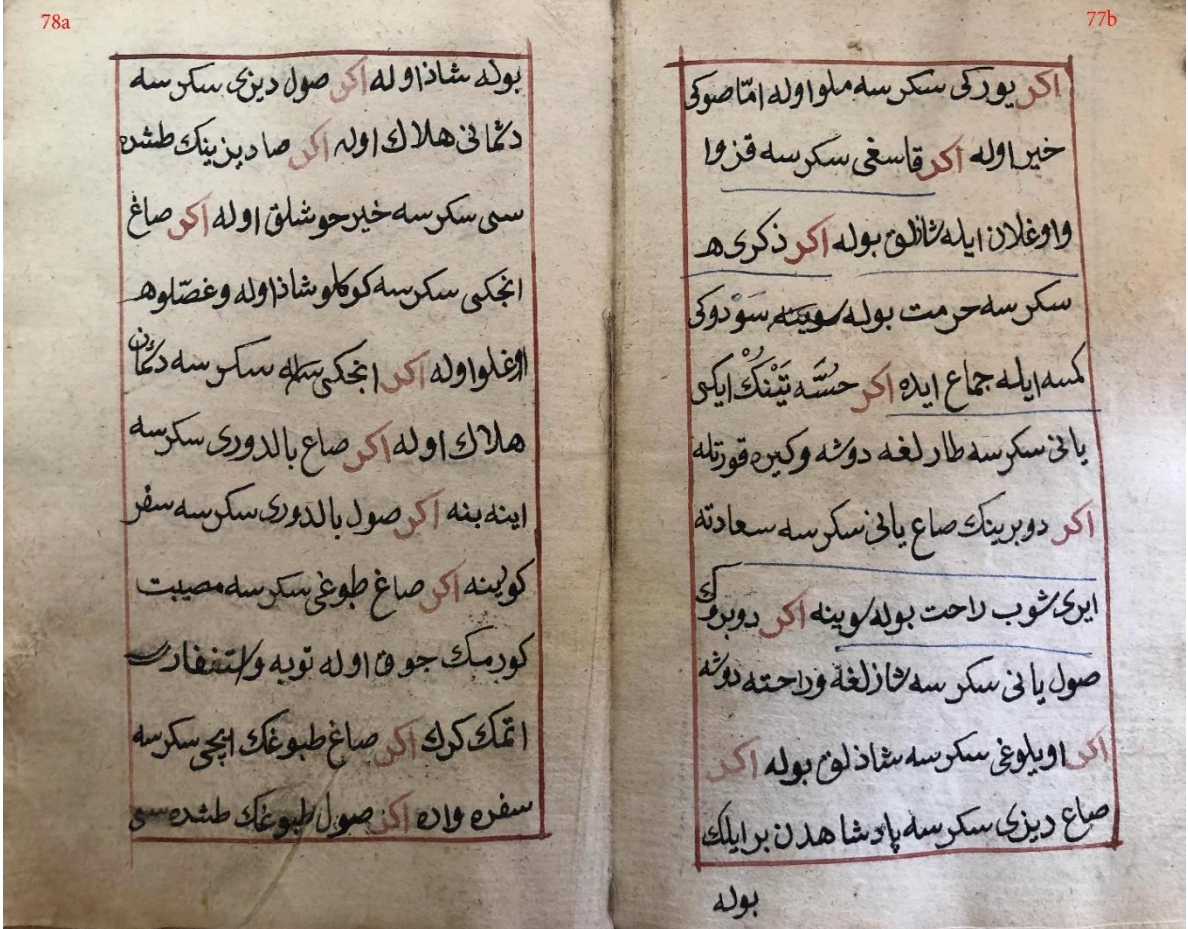 77b
اكر يوركى سكرسه ملو اوله امّا صوكى
خير اوله اكر قاسغى سكرسه قز وا
واوغلان ايله شاذلق بوله اكر ذكرى ه
سكرسه حرمت بوله سوينه سَوْدوكى
كمسه ايله جماع ايده اكر حسّه تَيْنْكْ ايكى
يانى سكرسه طارلغه دوشه وكيره قورتله
اكر دوبرينك صاع يانى سكرسه سعادته
ايرى شوب راحت بوله سوينه اكر دوبروك
صول يانى سكرسه شازلغه وراحته دوشه
اكر اويلوغى سكرسه شاذلق بوله اكر
صاع ديزى سكرسه پادشاهدن بر ايلك
بوله
78a
بوله شاذ اوله اكر صول ديزى سكرسه
دشمانى هلاك اوله اكر صا ديزينك طشده
سى سكرسه خير حوشلق اوله اكر صاغ
انجكى سكرسه كوكلو شاذ اوله وغصّلوه
اوغلو اوله اكر انجكى سكرسه دشمان
هلاك اوله اكر صاع بالدورى سكرسه
اينه بنه اكر صول بالدورى سكرسه سفر
كوينه اكر صاغ طبوغى سكرسه مصيبت
كورمك جوق اوله توبه واستغفار
اتمك كرك اكر صاغ طبوغك ايچى سكرسه
سفره واره اكر صول طبوغك طشده سى